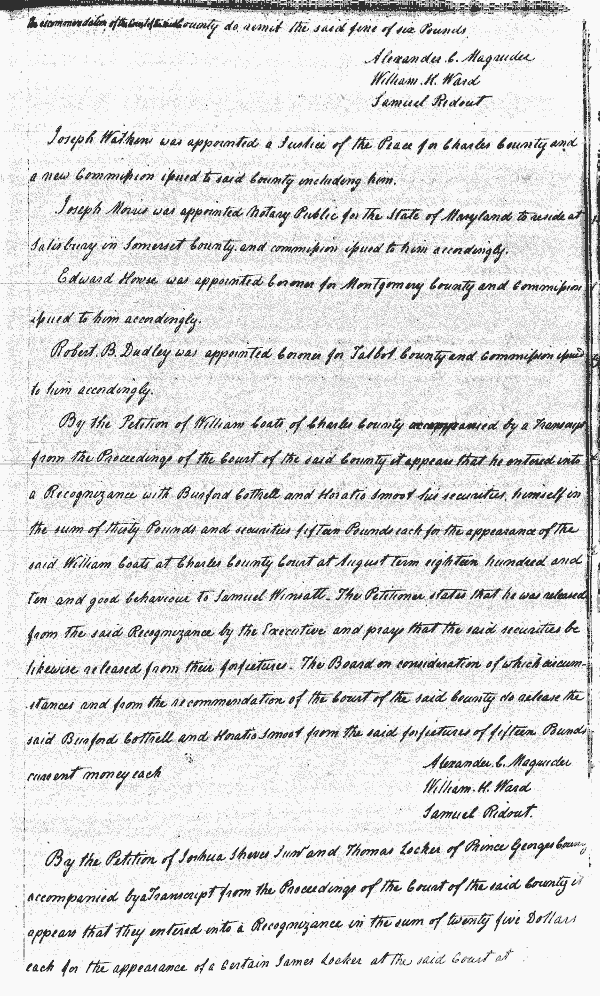 the recommendation of the Court of the said County do remit the said fine of six Pounds.
Alexander C. Magruder
William. H. Ward
Samuel Ridout
Joseph Watkins was appointed a Justice of the Peace for Charles County and
a new Commission issued to said County including him.
Joseph Morris was appointed Notary Public for the State of Maryland to reside at
Salisbury in Somerset County and commission issued to him accordingly.
Edward Howse was appointed Coroner for Montgomery County and Commission
issued to him accordingly.
Robert. B. Dudley was appointed Coroner for Talbot County and Commission issued
to him accordingly.
By the Petition of William Coats of Charles County accompanied by a Transcript
from the Proceedings of the Court of the said County it appears that he entered into
a Recognizance with Burford Cottrell and Horatio Smoot his securities, himself in
the sum of thirty Pounds and securities fifteen Pounds each for the appearance of the
said William Coats at Charles County Court at August term eighteen hundred and
ten and good behaviour to Samuel Winsatt. The Petitioner states that he was released
from the said Recognizance by the Executive and prays that the said securities be
likewise released from their forfeitures. The Board on consideration of which circum-
stances and from the recommendation of the Court of the said County do release the
said Burford Cottrell and Horatio Smoot from the said forfeitures of fifteen Pounds
current money each
Alexander. C. Magruder
William. H. Ward
Samuel Ridout.
By the Petition of Joshua Sheves Junr and Thomas Locker of Prince Georges County
accompanied by a Transcript from the Proceedings of the Court of the said County it
appears that they entered into a Recognizance in the sum of twenty five Dollars
each for the appearance of a Certain James Locker at the said Court at